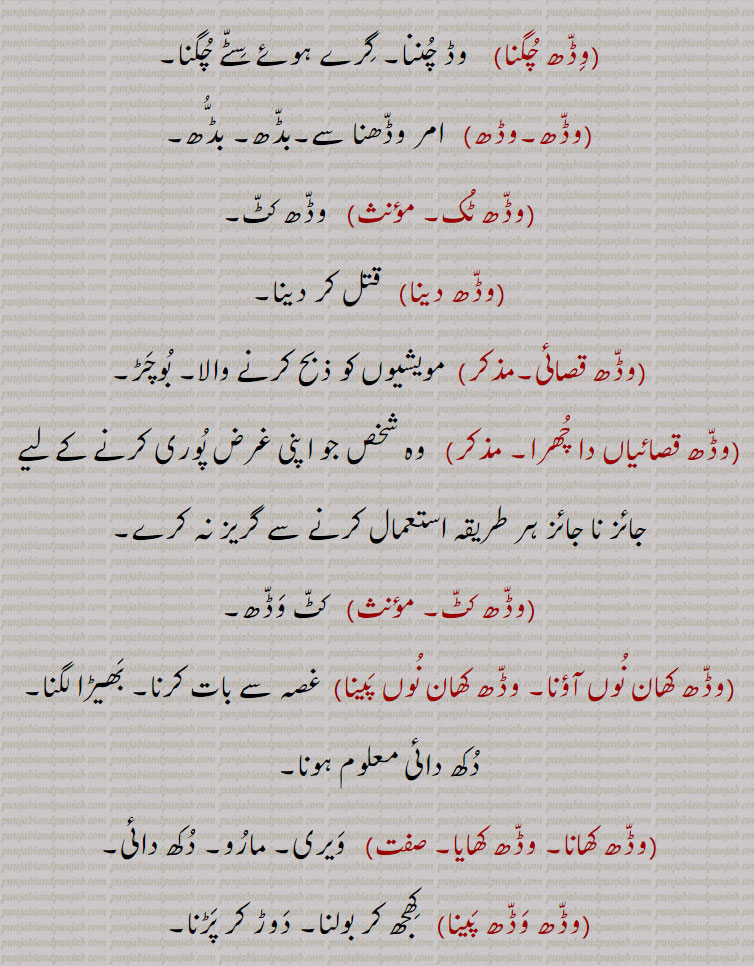 (وِڈّھ چُگنا) وڈ چُننا۔ گِرے ہوئے سِٹّے چُگنا۔
(وڈّھ۔وڈھ) امر وڈّھنا سے۔بڈّھ۔ بڈُّھ۔
(وڈّھ ٹُک۔ مؤنث) وڈّھ کٹّ۔
(وڈّھ دینا) قتل کر دینا۔
(وڈّھ قصائی۔مذکر) مویشیوں کو ذبح کرنے والا۔ بُوچَڑ۔
(وڈّھ قصائیاں دا چُھرا۔ مذکر) وہ شخص جو اپنی غرض پُوری کرنے کے لیے
جائز نا جائز ہر طریقہ استعمال کرنے سے گریز نہ کرے۔
(وڈّھ کٹّ۔ مؤنث) کٹّ وَڈّھ۔
(وڈّھ کھان نُوں آؤنا۔ وڈّھ کھان نُوں پَینا) غصہ سے بات کرنا۔ بَھیڑا لگنا۔
دُکھ دائی معلوم ہونا۔
(وڈّھ کھانا۔ وڈّھ کھایا۔ صفت) وَیری۔ مارُو۔ دُکھ دائی۔
(وڈّھ وَڈّھ پَینا) کِھجھ کر بولنا۔ دَوڑ کر پَڑنا۔